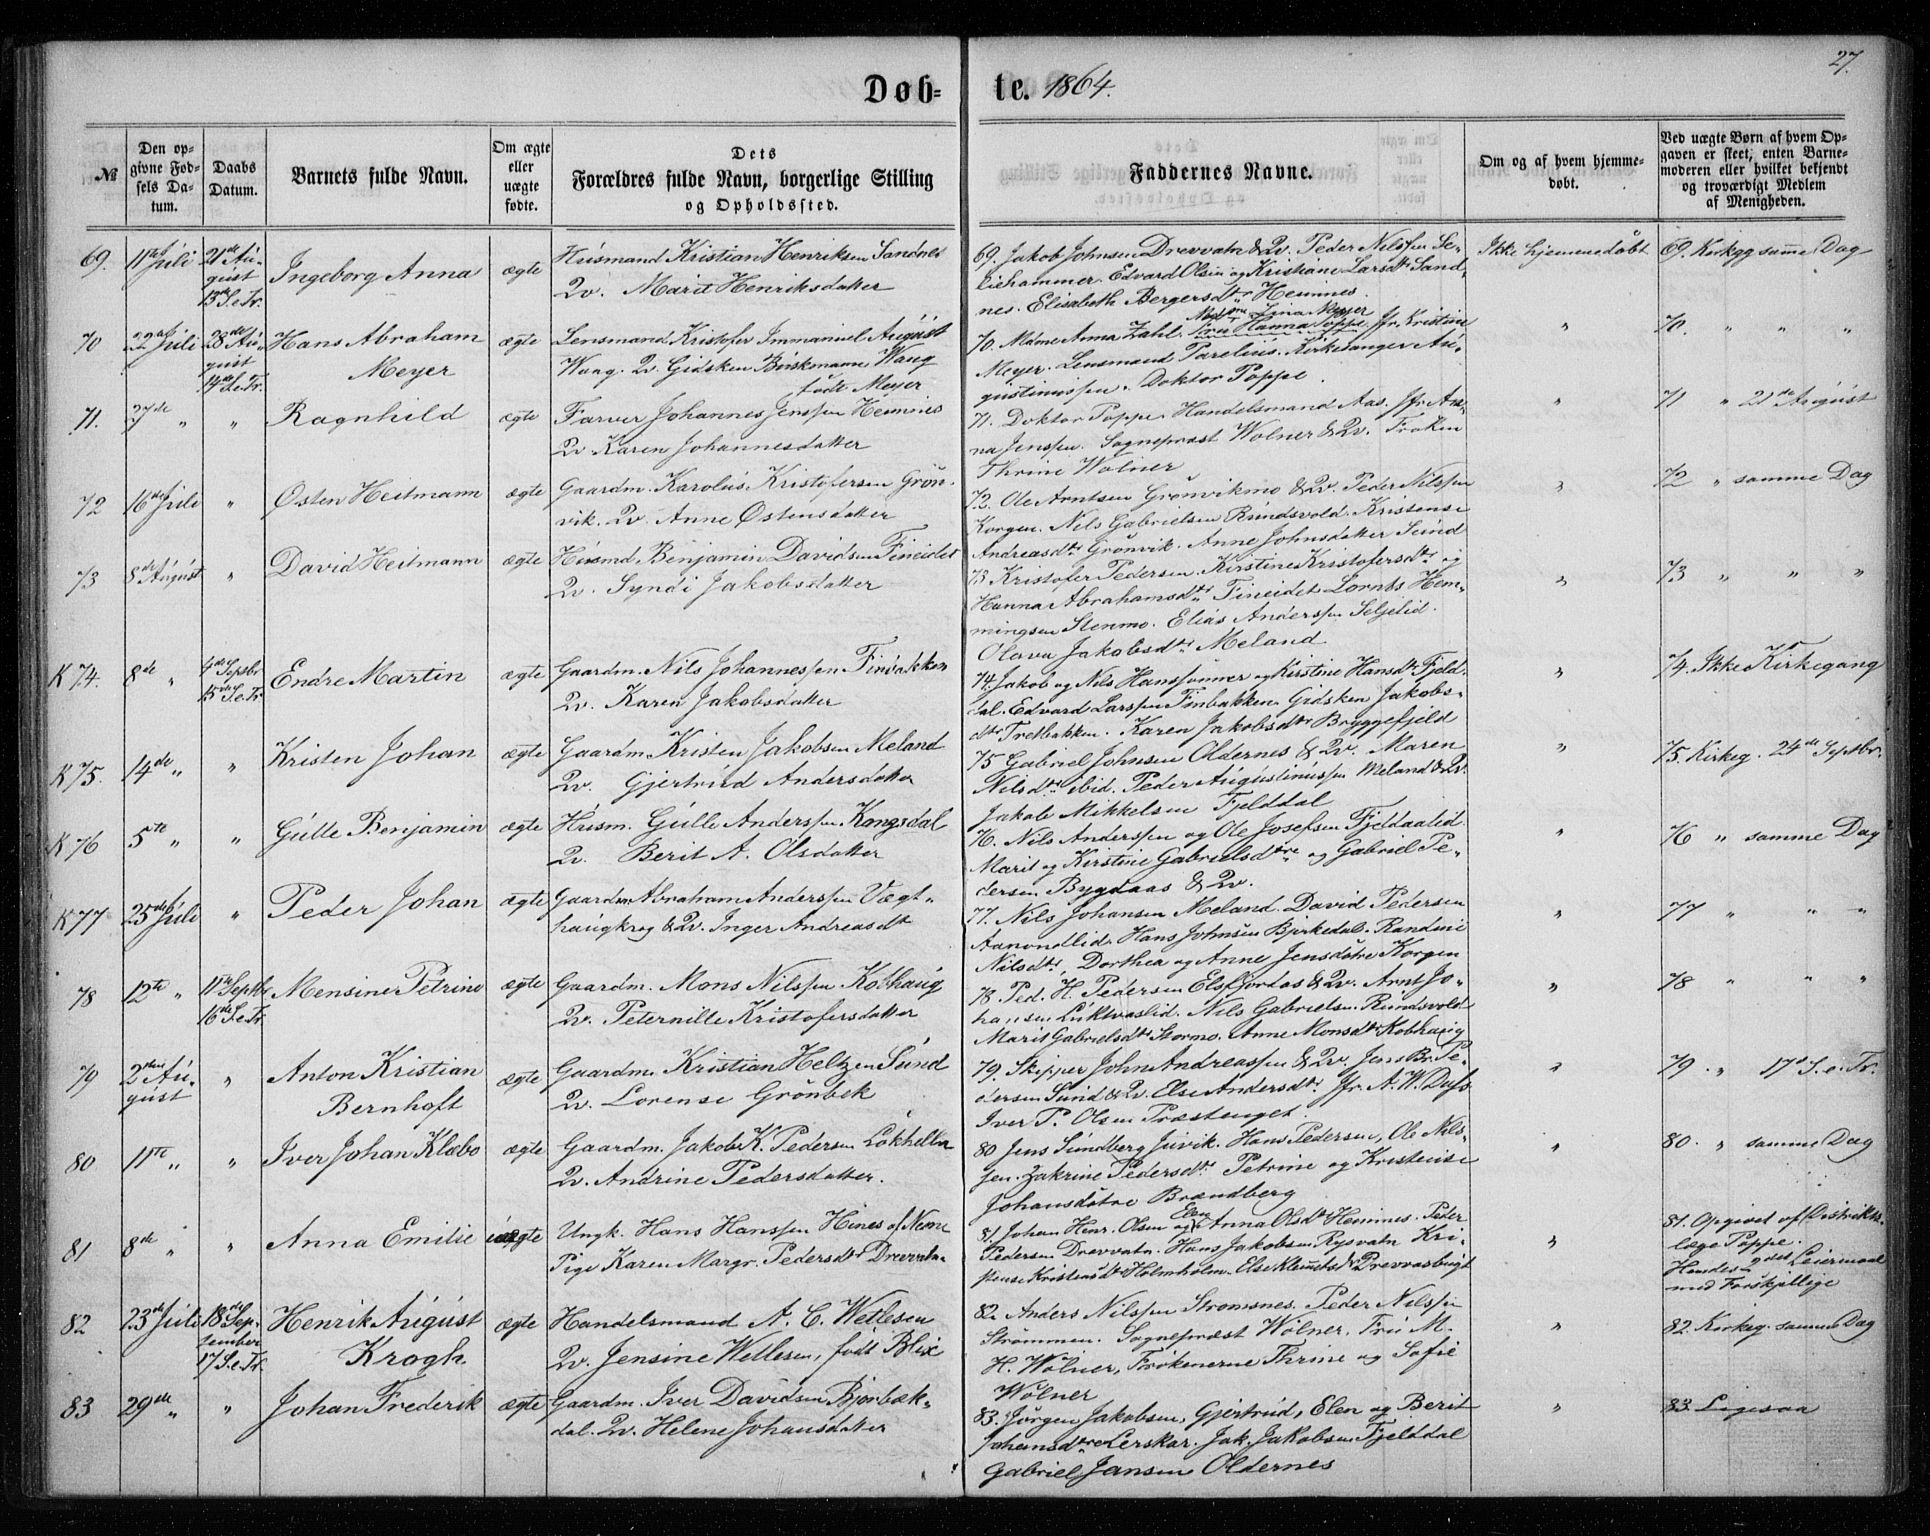 27.
Døb-
te. 1864.
№
Den op-
givne Fød-
sels Da-
tum.
Daabs
Datum.
Barnets fulde Navn.
Om ægte
eller
uægte
fødte.
Dets
Forældres fulde Navn, borgerlige Stilling
og Opholdssted.
Faddernes Navne.
Om og af hvem hjemme-
døbt.
Ved uægte Børn af hvem Op-
gaven er skeet, enten Barne-
moderen eller hvilket bekjendt
og troværdigt Medlem
af Menigheden.
69. 11te Juli 21de Au-
gust
13de S.e.Tr.
Ingeborg Anna
ægte
Husmand Kristian Henriksen Sandnes
Qv. Marit Henriksdatter
69. Jakob Johnsen Drevvatn & Qv. Peder Nilssen Se-
liehammer. Edvard Olsen og Kristiane Larsdtr Sand-
nes. Elisabeth Bergersdtr Hemnes.
Ikke hjemmedøbt
69. Kirkgg samme Dag
70 22de Juli 28de Au-
gust
14de S.e.Tr.
Hans Abraham
Meyer
ægte
Lensmand Kristofer Immanuel August
Waag. Qv. Gidsken Waag
født Meyer
70. Mdme Anna Zahl. Lina Meyer
Fru Hanna Poppe. Jfr. Kristine
Meyer. Lensmand Parelius. Kirkesanger Au-
gustinussen. Doktor Poppe.
"
70. " " "
71. 27de " "
Ragnhild
ægte
Farver Johannes Jenssen Hemnes
Qv. Karen Johannesdatter
71. Doktor Poppe. Handelsmand Aas. Jfr. An-
na Jenssen. Sognepræst Wolner & Qv. Frøken
Thrine Wolner
"
71 " 21de August
72 16de Juli "
Østen Heitmann
ægte
Gaardm. Karolus Kristofersen Grøn-
vik. Qv. Anne Østensdatter
72. Ole Arntsen Grønvikmo & Qv. Peder Nilssen
Korgen. Nils Gabrielsen Rundsvold. Kristense
Andreasdtr Grønvik. Anne Johnsdatter Sund
"
72 " samme Dag
73 8de August "
David Heitmann
ægte
Husmd Benjamin Davidsen Fineidet
Qv. Synøi Jakobsdatter
73 Kristofer Pedersen. Kirstine Kristofersdtr og
Hanna Abrahamsdtr Fineidet Lornts Hem-
mingsen Stenmo. Elias Anderssen Seljelid.
Olava Jakobsdtr Meland
"
73 " " "
K 74. 8de " 4de Septbr
15de S.e.Tr.
Endre Martin
ægte
Gaardm. Nils Johannessen Finbakken
Qv. Karen Jakobsdatter
74. Jakob og Nils Hanssønner og Kirstine Hansdtr Fjeld-
dal. Edvard Larssen Finbakken. Gidsken Jakobs-
dtr Tretbakken. Karen Jakobsdtr Bryggefjeld
"
74. Ikke Kirkegang
K 75. 14de " "
Kristen Johan
ægte
Gaardm. Kristen Jakobsen Meland
Qv. Gjertrud Andersdatter
75 Gabriel Johnsen Oldernes & Qv. Maren
Nilsdtr ibid. Peder Augustinussen Meland & Qv.
Jakob Mikkelsen Fjelddal
"
75. Kirkeg. 24de Septbr.
K 76 5te " "
Gulle Benjamin
ægte
Husm. Gulle Anderssen Kongsdal
Qv. Berit A. Olsdatter
76. Nils Anderssen og Ole Josefsen Fjeldaalid
Marit og Kirstine Gabrielsdøtre og Gabriel Pe-
dersen Bygdaas & Qv.
"
76 " samme Dag
K 77 25de Juli "
Peder Johan
ægte
Gaardm Abraham Anderssen Vægt-
haugkrog & Qv. Inger Andreasdtr
77. Nils Johansen Meland. David Pedersen
Aanondlid. Hans Johnsen Bjerkedal. Randine
Nilsdtr. Dorthea og Anne Jensdøtre Korgen
"
77 " " "
78 12te " 11te Septbr
16de S.e.Tr.
Mensine Petrine
ægte
Gaardm. Mons Nilssen Kobhaug
Qv. Peternille Kristofersdatter
78. Ped. H. Pedersen Elsfjordas & Qv. Arnt Jo-
hansen Luktvaslid. Nils Gabrielsen Rundsvold
Marit Gabrielsdtr Stormo. Anne Monsdtr Kobhaug
"
78 " " "
79 2den Au-
gust "
Anton Kristian
Bernhoft
ægte
Gaardm. Kristian Heltzen Sund
Qv. Lorense Grønbek
79. Skipper John Andreassen & Qv. Jens Br. Pe-
dersen Sund & Qv. Else Andersdtr. Jfr. A. W.
Iver P. Olsen Præstenget.
"
79. " 17de S.e.Tr.
80 11te " "
Iver Johan Klæbo
ægte
Gaardm. Jakob K. Pedersen Løkhellen
Qv. Andrine Pedersdatter.
80 Jens Sundberg Juvik. Hans Pedersen, Ole Nils-
sen. Zakrine Pedersdtr Petrine og Kristense
Johansdøtre Brændberg
"
80. " samme Dag
81 8de " "
Anna Emilie
uægte
Ungk. Hans Hanssen Hines af Nesne
Pige Karen Margr. Pedersdtr Drevvatn
81. Johan Henr. Olsen og Elen Anna Olsdtr Hemnes. Peder
Pedersen Drevvatn. Hans Jakobsen Rysvatn Kri-
stense Kristensdtr Holmholm. Else Klemetsdtr Drevvasbugt
"
81. Opgivet af Distrikts-
læge Poppe.
Hendes 2det Leiermaal
med Forskjellige
82 23de Juli 18de Sep-
tember
17 S.e.Tr.
Henrik August
Krogh.
ægte
Handelsmand A. C. Wetlesen
Qv. Jensine Wetlesen, født Blix
82. Anders Nilssen Strømsnes. Peder Nilssen
Strømmen. Sognepræst Wolner. Fru M.
H. Wolner, Frøkenerne Thrine og Sofie
Wolner
"
82. Kirkeg. samme Dag
83 29de " "
Johan Frederik
ægte
Gaardm. Iver Davidsen Bjørbæk-
dal. Qv. Helene Johansdatter
83. Jørgen Jakobsen, Gjertrud, Elen og Berit
Johansdøtre Lerskar. Jak. Jakobsen Fjelddal
Gabriel Jansen Oldernes
"
83. Ligesaa